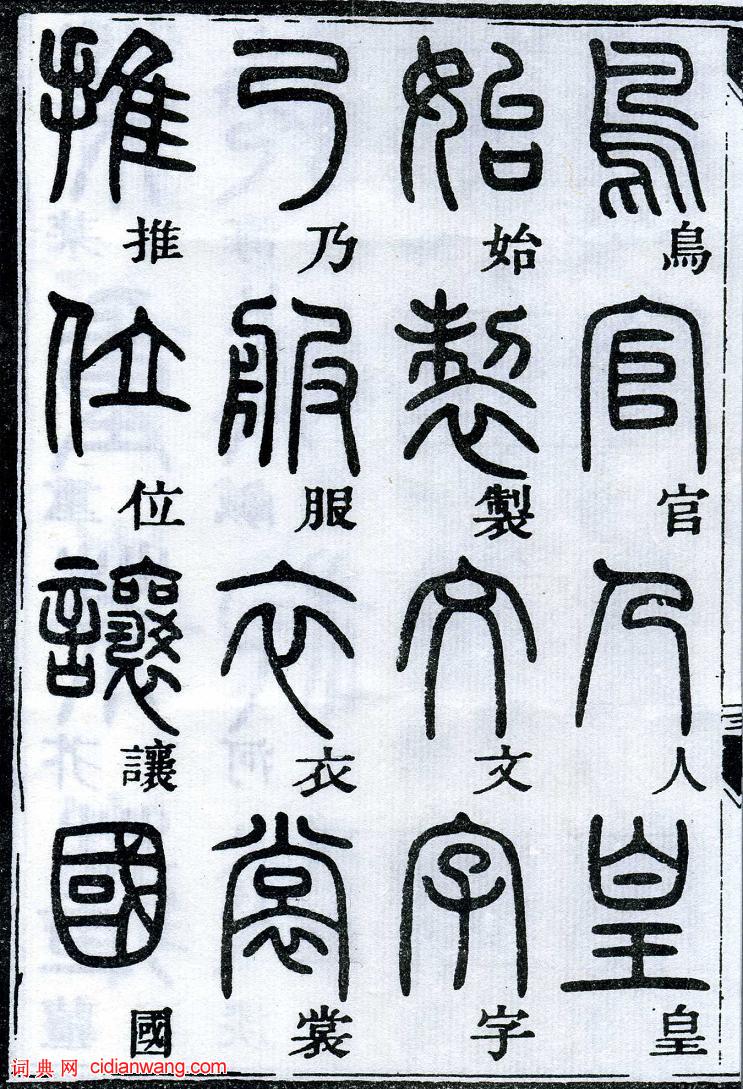 鳥官人皇
始製文字
乃服衣裳
推位讓國
词典网 cidianwang.com